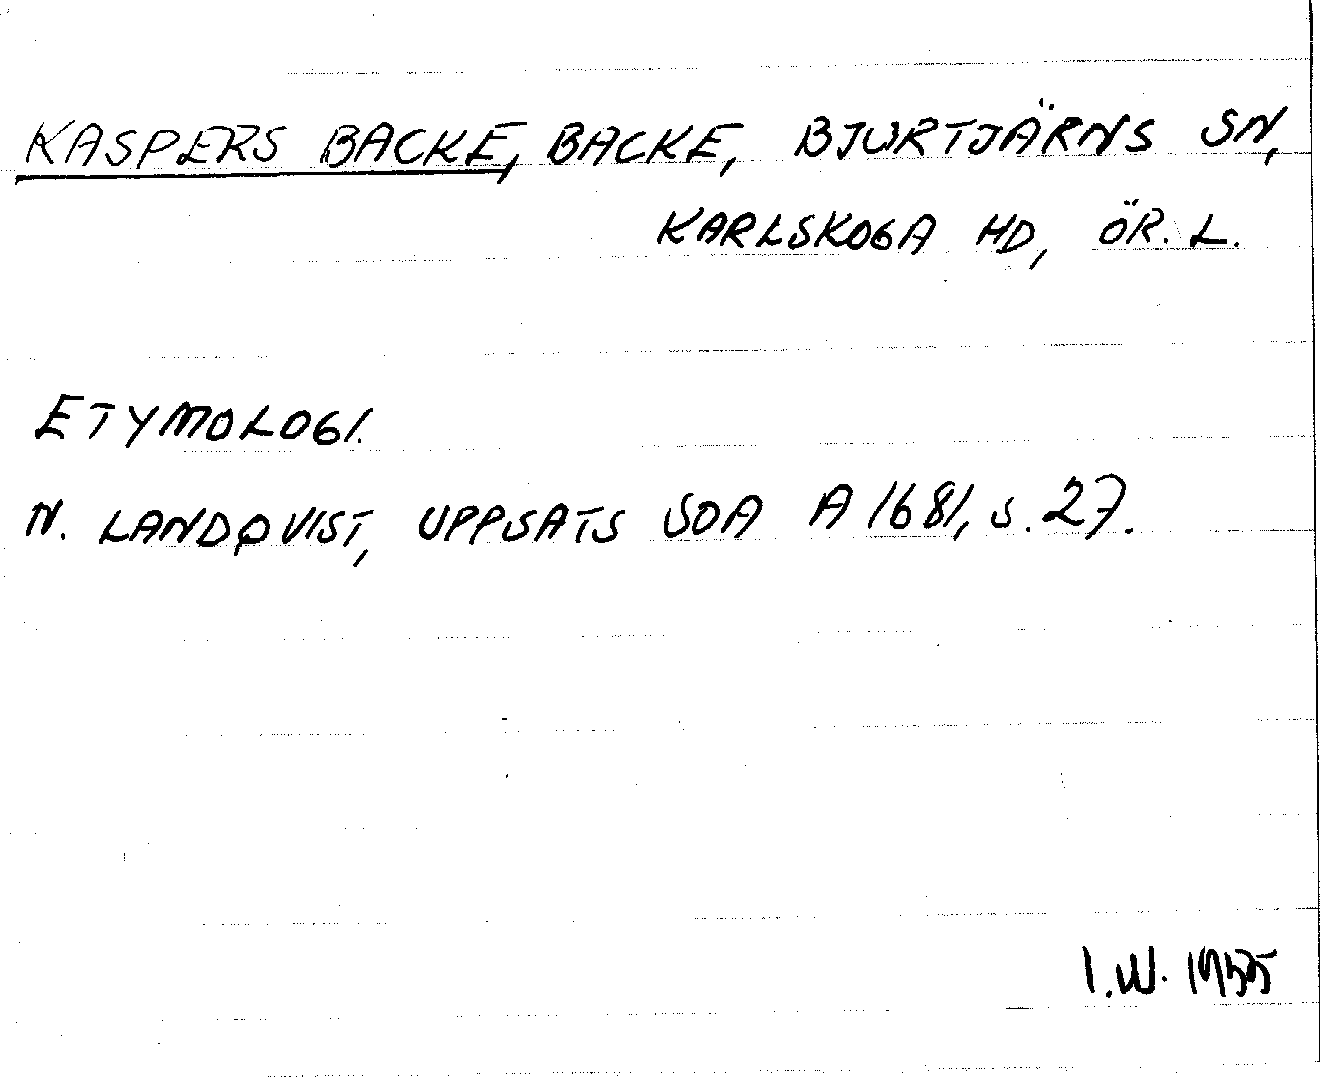 KASPERS BACKE, BACKE, BJURTJÄRNS SN,
KARLSKOGA HD, ÖR. L.
ETYMOLOGI.
N. LANDQVIST, UPPSATS SOA A 1681, s. 27.
I.W. 1955